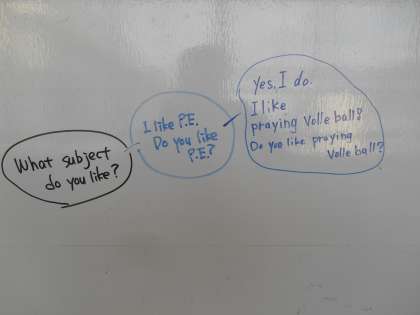 What subject
do you like?
I like P.E.
Do you like
P.E.?
Yes, I do.
I like
praying Volle ball?
Do you like praying
Volle ball?